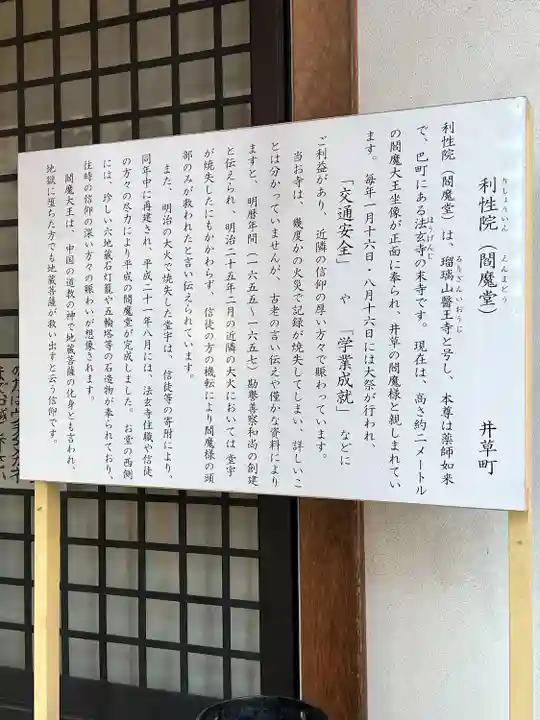 利性院（閻魔堂）　井草町
りしょういん　えんまどう
利性院（閻魔堂）は、瑠璃山醫王寺と号し、本尊は薬師如来
るりざんいおうじ
で、巴町にある法玄寺の末寺です。現在は、高さ約二メートル
ほうげんじ
の閻魔大王坐像が正面に奉られ、井草の閻魔様と親しまれてい
ます。毎年一月十六日・八月十六日には大祭が行われ、
「交通安全」　や　「学業成就」　などに
ご利益があり、近隣の信仰の厚い方々で賑わっています。
当お寺は、幾度かの火災で記録が焼失してしまい、詳しいこ
とは分かっていませんが、古老の言い伝えや僅かな資料により
ますと、明暦年間（一六五五～一六五七）勘譽善察和尚の創建
と伝えられ、明治二十五年二月の近隣の大火においては堂宇
が焼失したにもかかわらず、信徒の方の機転により閻魔様の頭
部のみが救われたと言い伝えられています。
また、明治の大火で焼失した堂宇は、信徒等の寄附により、
同年中に再建され、平成二十一年八月には、法玄寺住職や信徒
の方々の尽力により平成の閻魔堂が完成しました。お堂の西側
には、珍しい六地蔵石灯籠や五輪塔等の石造物が奉られており、
往時の信仰の深い方々の賑わいが想像されます。
閻魔大王は、中国の道教の神で地蔵菩薩の化身とも言われ、
地獄に堕ちた方でも地蔵菩薩が救い出すと云う信仰です。